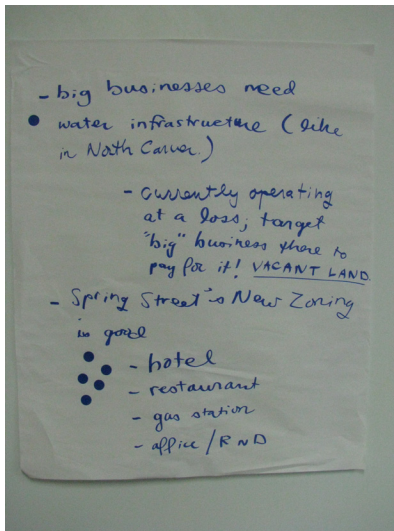 - big businesses need
water infrastructure (like
in North Carver.)
- currently operating
at a loss; target
"big" business there to
pay for it! VACANT LAND
- Spring Street's New Zoning
is good
- hotel
- restaurant
- gas station
- office / R N D